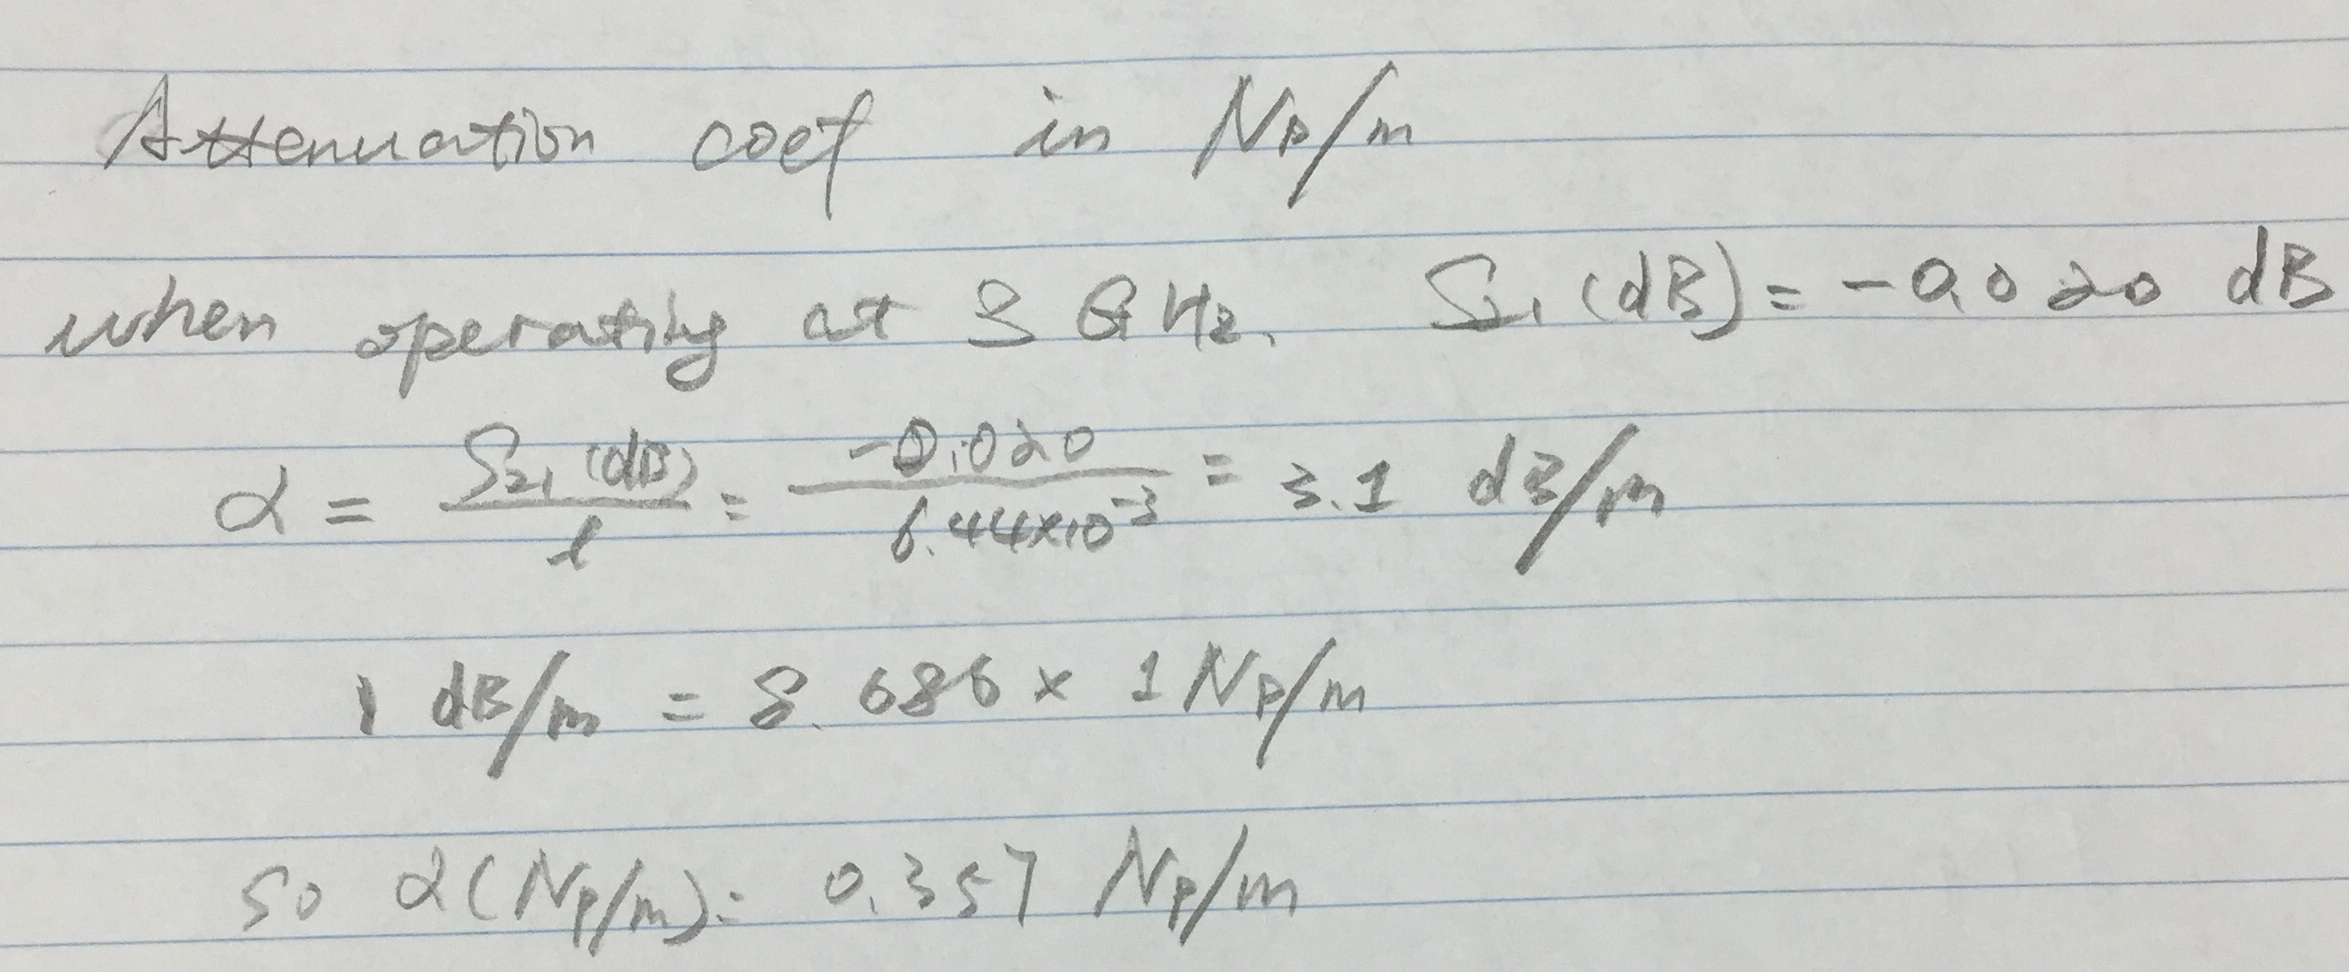 Attenuation coef in Np/m
when operating at 3 GHz, S21 (dB) = -0.020 dB
α = S21 (dB) / l = -0.020 / 6.44×10^-3 = 3.1 dB/m
1 dB/m = 8.686 × 1 Np/m
so α(Np/m) = 0.357 Np/m